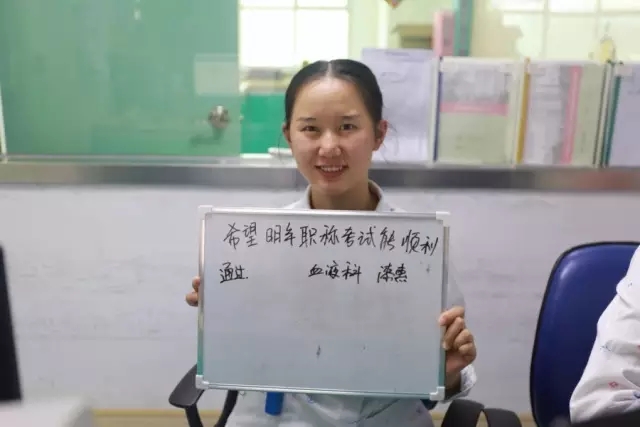 希望明年职称考试能顺利
通过 血液科